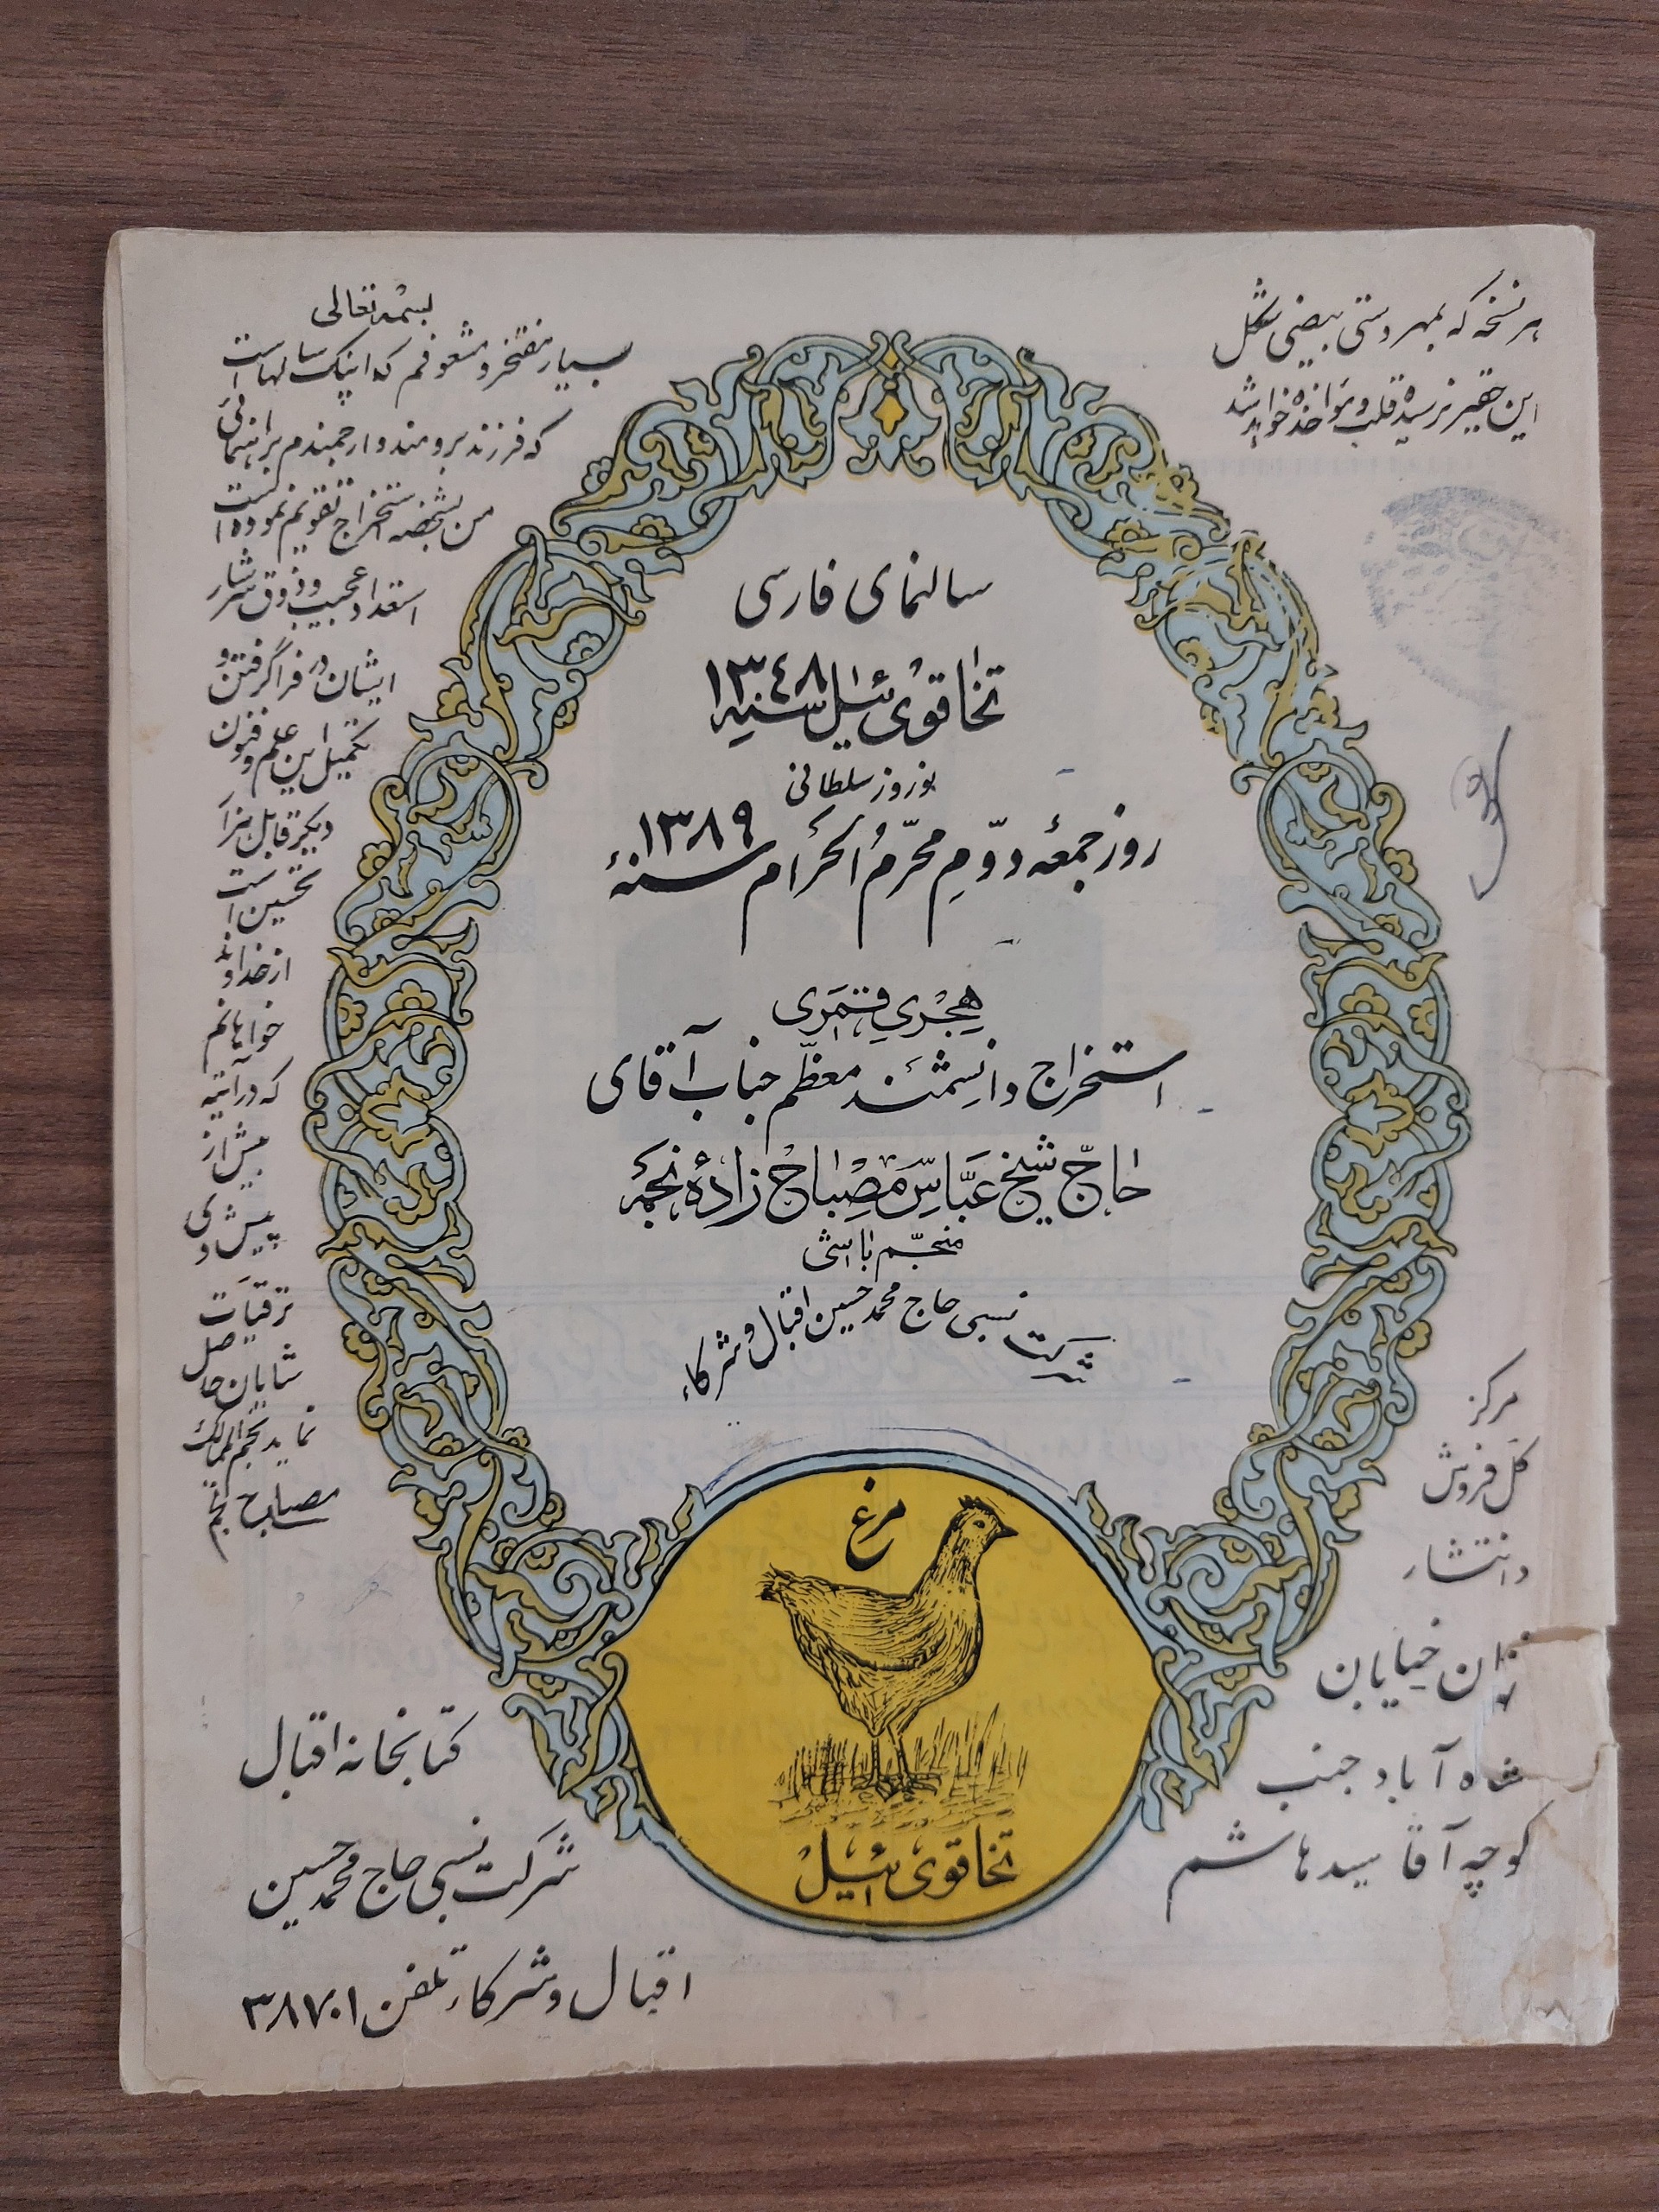 هر نسخه که بمهر دستی بیضی شکل
این حقیر نرسیده قلب و مؤاخذه خواهد شد
بسمه تعالی
بسیار مفتخر و مشعوفم که اینک سالهاست
که فرزند برومند و ارجمندم براهنمائی
من بشخصه استخراج تقویم نموده است
استعداد عجیب و ذوق سرشار
ایشان در فرا گرفتن و
تکمیل این علم و فنون
دیگر قابل هزار
تحسین است
از خداوند
خواهانم
که در آتیه
بیش از
پیش وی
ترقیات
شایان حاصل
نماید نجم الممالک
مصباح منجم
سالنمای فارسی
تخاقوی ئیل سنه ۱۳۴۸
نوروز سلطانی
روز جمعه دوّم محرّم الحرام سنهٔ ۱۳۸۹
هجری قمری
استخراج دانشمند معظّم جناب آقای
حاجّ شیخ عبّاس مصباح زادهٔ نجمی
منجّم باشی
شرکت نسبی حاج محمد حسین اقبال و شرکاء
مرغ
تخاقوی ئیل
مرکز
کل فروش
و انتشار
تهران خیابان
شاه آباد جنب
کوچه آقا سید هاشم
کتابخانه اقبال
شرکت نسبی حاج محمد حسین
اقبال و شرکاء تلفن ۳۸۷۰۱